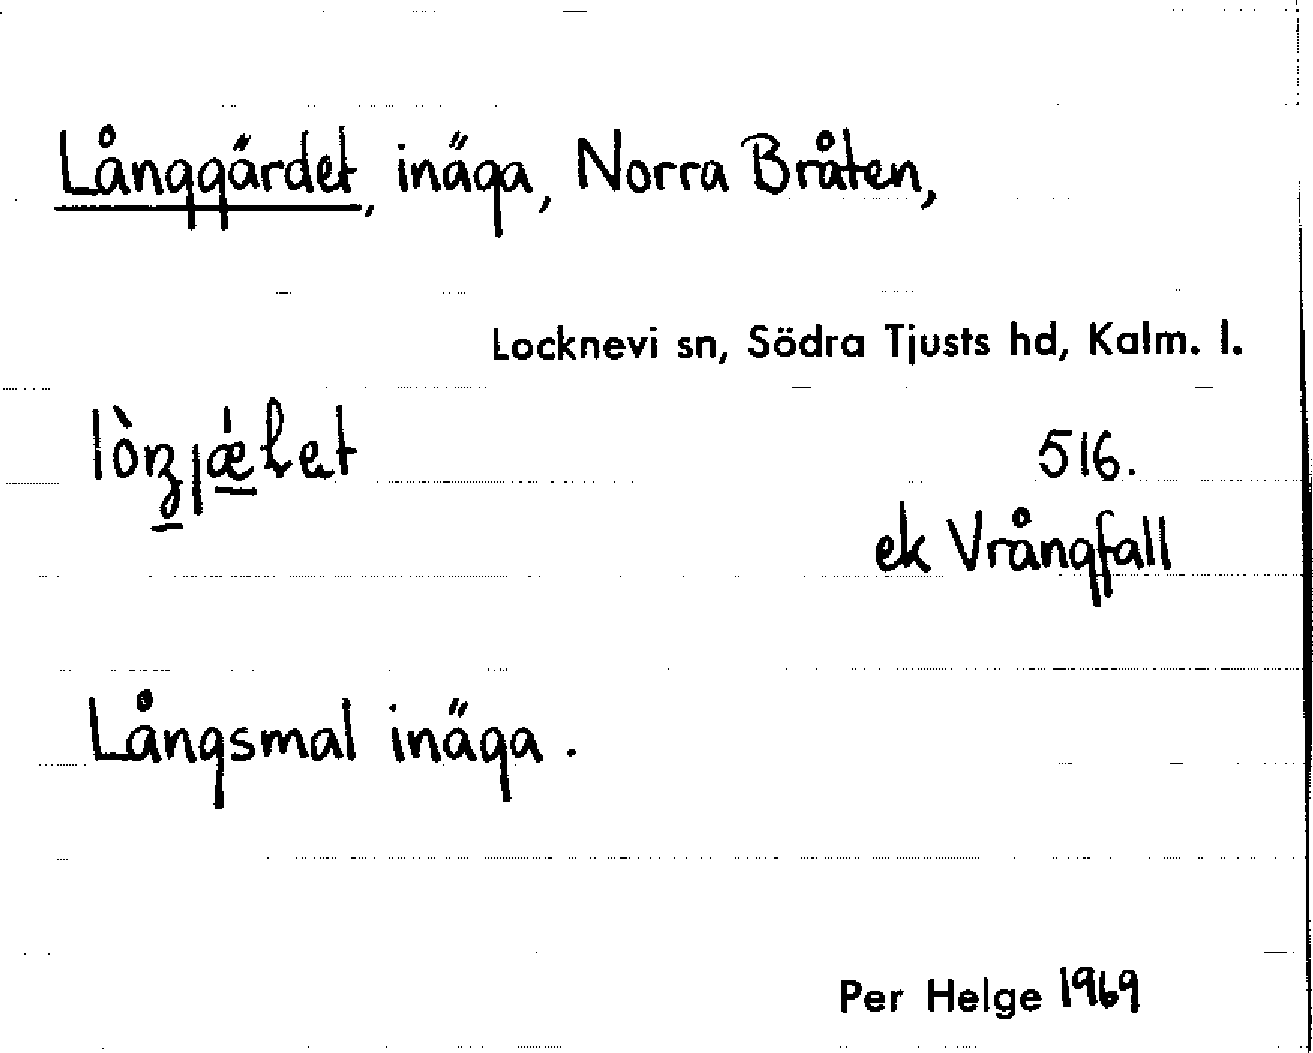 Långgärdet, inäga, Norra Bråten,
Locknevi sn, Södra Tjusts hd, Kalm. l.
516.
ek Vrångfall
Långsmal inäga.
Per Helge 1969